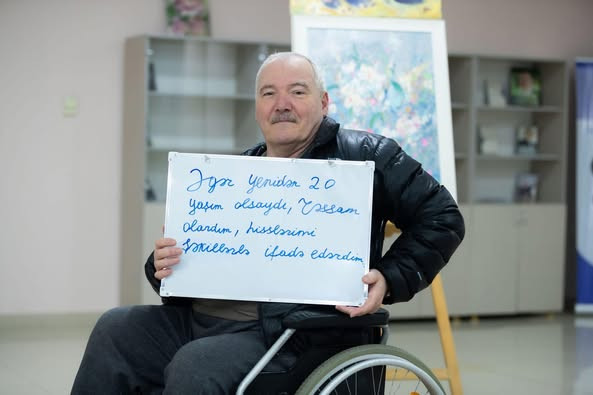 Əgər yenidən 20
yaşım olsaydı, rəssam
olardım, hisslərimi
şəkillərlə ifadə edərdim